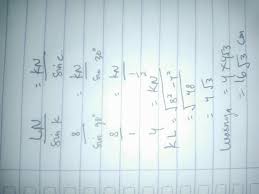 LN/sin K = KN/sin c
8/sin 90° = KN/sin 30°
8/1 = KN/½
4 = KN
KL = √8² - 4²
= √48
= 4√3
Luasnya = 4 × 4√3
= 16√3 cm